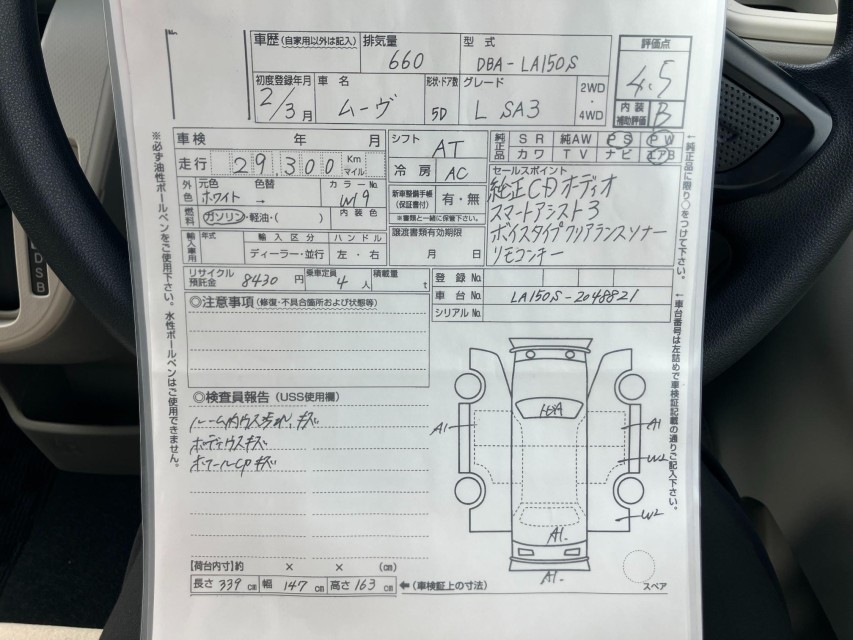 車歴(自家用以外は記入) 排気量 660 型式 DBA-LA150S 評価点 4.5
初度登録年月 2/3月 車名 ムーヴ 形状・ドア数 5D グレード L SA3 2WD・4WD 内装補助評価 B
車検 年 月 シフト AT 純正品 SR 純AW PS PW
カワ TV ナビ エアB
走行 29,300 Km マイル 冷房 AC
セールスポイント
純正CDオーディオ
スマートアシスト3
ボイスタイプクリアランスソナー
リモコンキー
外色 元色 ホワイト 色替 → カラーNo. W19 新車整備手帳(保証書付) 有・無
※書類と一緒に保管下さい。
燃料 ガソリン・軽油・( ) 内装色 譲渡書類有効期限
月 日
輸入車用 年式 輸入区分 ディーラー・並行 ハンドル 左・右
リサイクル預託金 8430円 乗車定員 4人 積載量 t 登録No.
車台No. LA150S-2048821
シリアルNo.
◎注意事項(修復・不具合箇所および状態等)
◎検査員報告(USS使用欄)
ルーム内ウス汚れ、キズ
ボディウスキズ
ホイールCPキズ
A1
A1
W2
W2
A1-
A1-
スペア
【荷台内寸】約 × × (cm)
長さ 339cm 幅 147cm 高さ 163cm ←(車検証上の寸法)
※必ず油性ボールペンをご使用下さい。水性ボールペンはご使用できません。
←純正品に限り○をつけて下さい。
←車台番号は左詰めで車検証記載の通りご記入下さい。
D
S
B